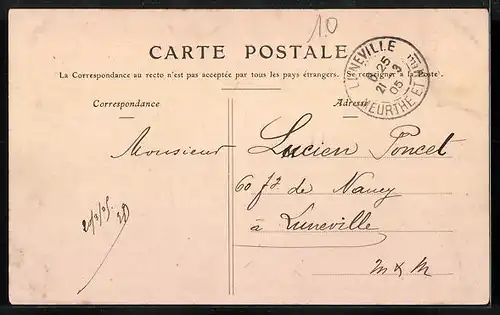 10
CARTE POSTALE
La Correspondance au recto n'est pas acceptée par tous les pays étrangers. (Se renseigner à la Poste).
Correspondance
Adresse
LUNEVILLE
21 -3
05
MEURTHE ET
Monsieur Lucien Poncet
60 fg de Nancy
à Luneville
M & M
21/3/05